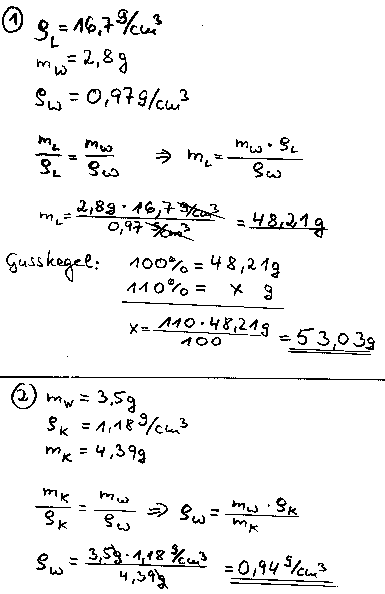 ① ρL = 16,7 g/cm³
mW = 2,8 g
ρW = 0,97 g/cm³
mL/ρL = mW/ρW ⇒ mL = mW · ρL / ρW
mL = 2,8 g · 16,7 g/cm³ / 0,97 g/cm³ = 48,21 g
Gusskegel: 100% = 48,21g
110% = x g
x = 110 · 48,21g / 100 = 53,03g
② mW = 3,5g
ρK = 1,18 g/cm³
mK = 4,39g
mK/ρK = mW/ρW ⇒ ρW = mW · ρK / mK
ρW = 3,5g · 1,18 g/cm³ / 4,39g = 0,94 g/cm³